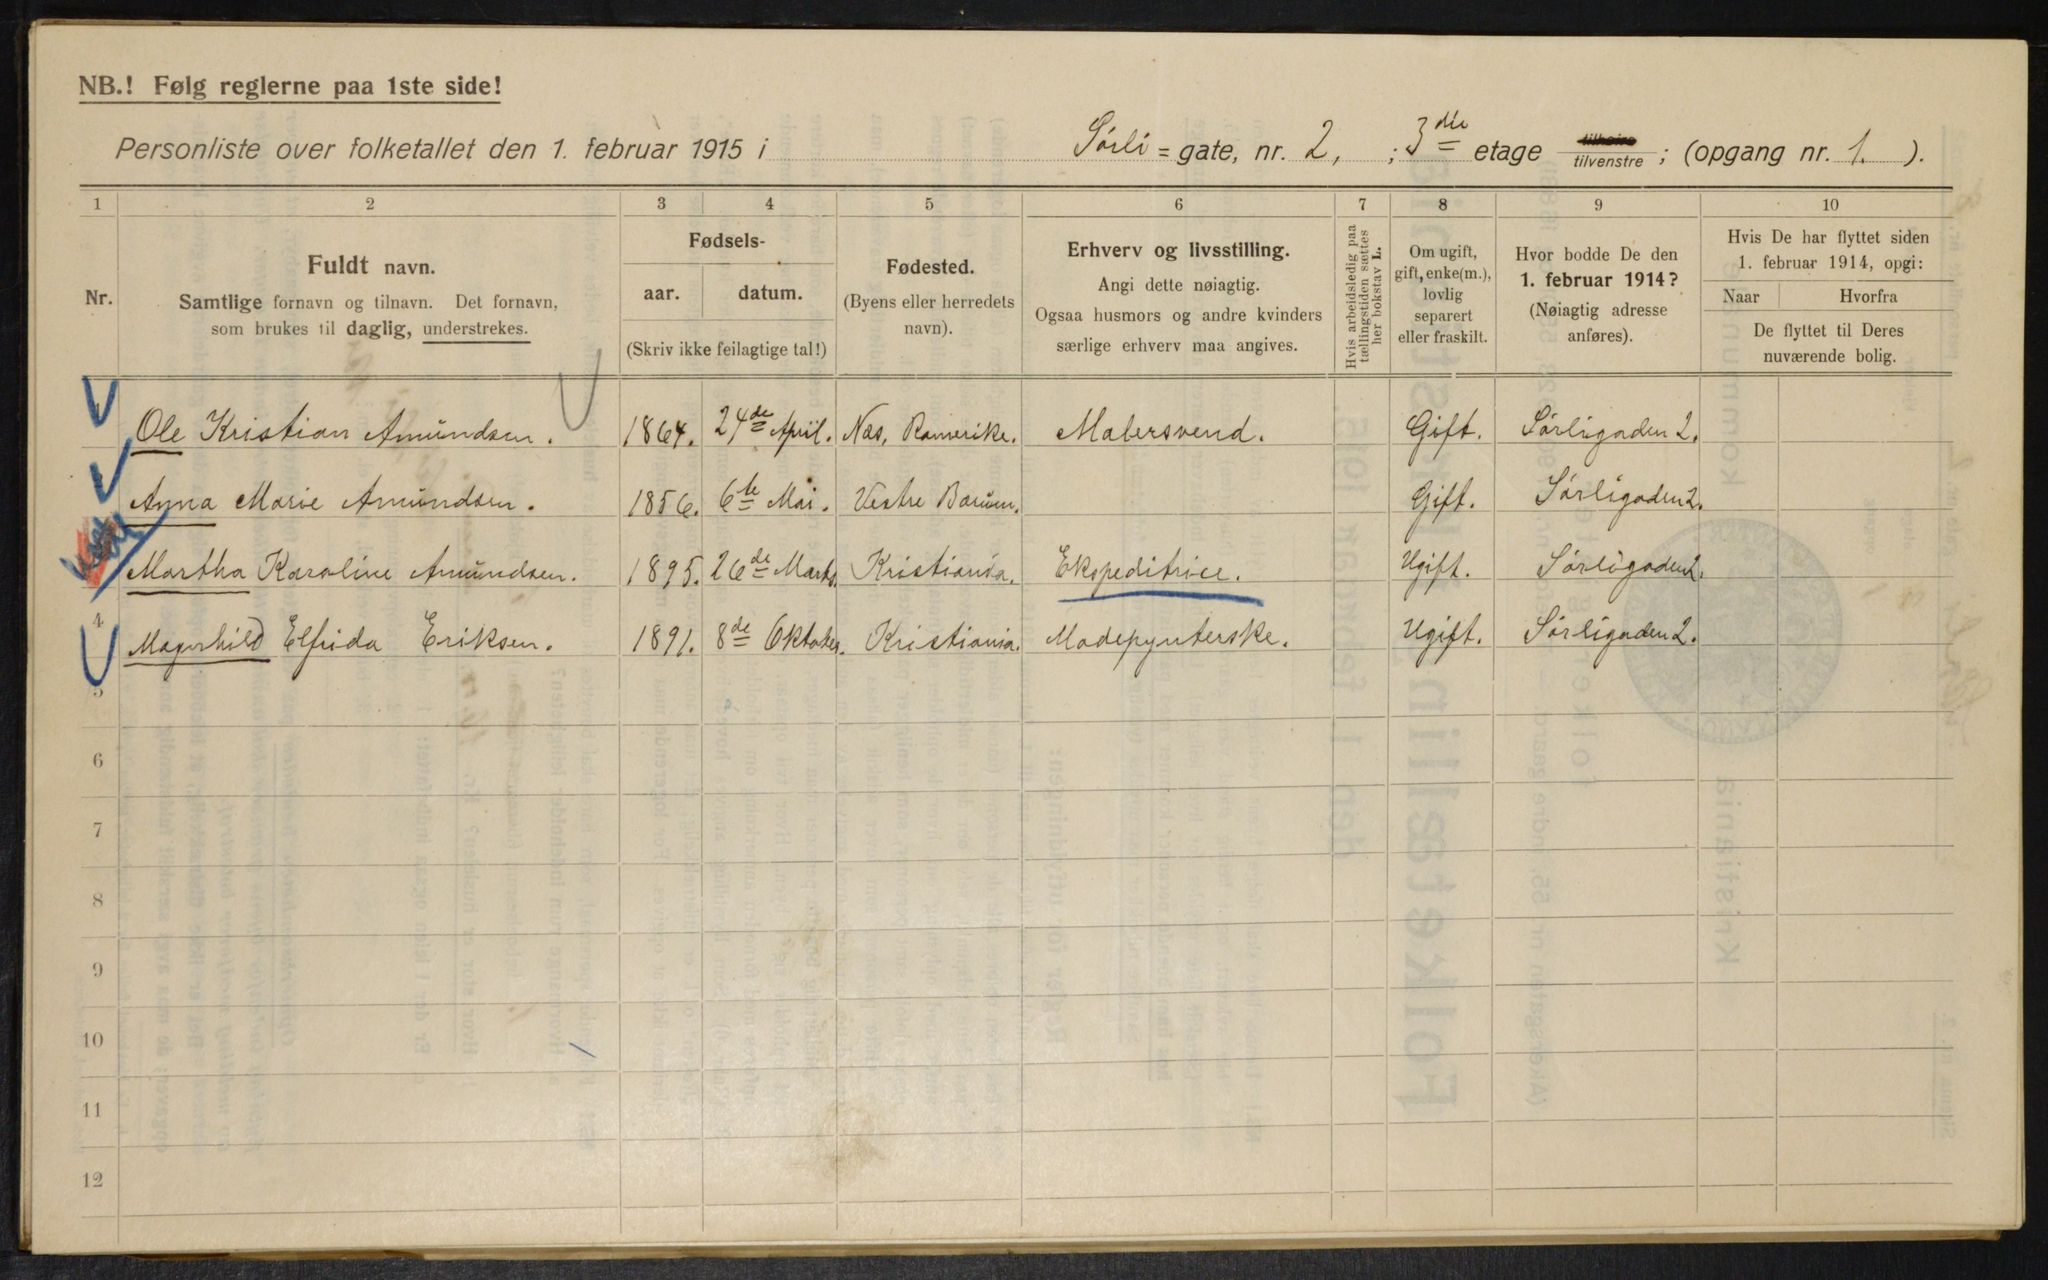 NB.! Følg reglerne paa 1ste side!
Personliste over folketallet den 1. februar 1915 i Sørli = gate, nr. 2, ; 3die etage tilhøire tilvenstre ; (opgang nr. 1. ).
1 2 3 4 5 6 7 8 9 10
Nr.
Fuldt navn.
Samtlige fornavn og tilnavn. Det fornavn,
som brukes til daglig, understrekes.
Fødsels-
aar. datum.
(Skriv ikke feilagtige tal!)
Fødested.
(Byens eller herredets
navn).
Erhverv og livsstilling.
Angi dette nøiagtig.
Ogsaa husmors og andre kvinders
særlige erhverv maa angives.
Hvis arbeidsledig paa
tællingstiden sættes
her bokstav L.
Om ugift,
gift, enke(m.),
lovlig
separert
eller fraskilt.
Hvor bodde De den
1. februar 1914?
(Nøiagtig adresse
anføres).
Hvis De har flyttet siden
1. februar 1914, opgi:
Naar Hvorfra
De flyttet til Deres
nuværende bolig.
Ole Kristian Amundsen. 1864. 24de April. Næs, Romerike. Malersvend. Gift. Sørligaden 2.
Anna Marie Amundsen. 1856. 6te Mai. Vestre Bærum. Gift. Sørligaden 2.
Martha Karoline Amundsen. 1895. 26de Marts Kristiania. Ekspeditrice. Ugift. Sørligaden 2.
4 Magnhild Elfrida Eriksen. 1891. 8de Oktober. Kristiania. Modepynterske. Ugift. Sørligaden 2.
5
6
7
8
9
10
11
12